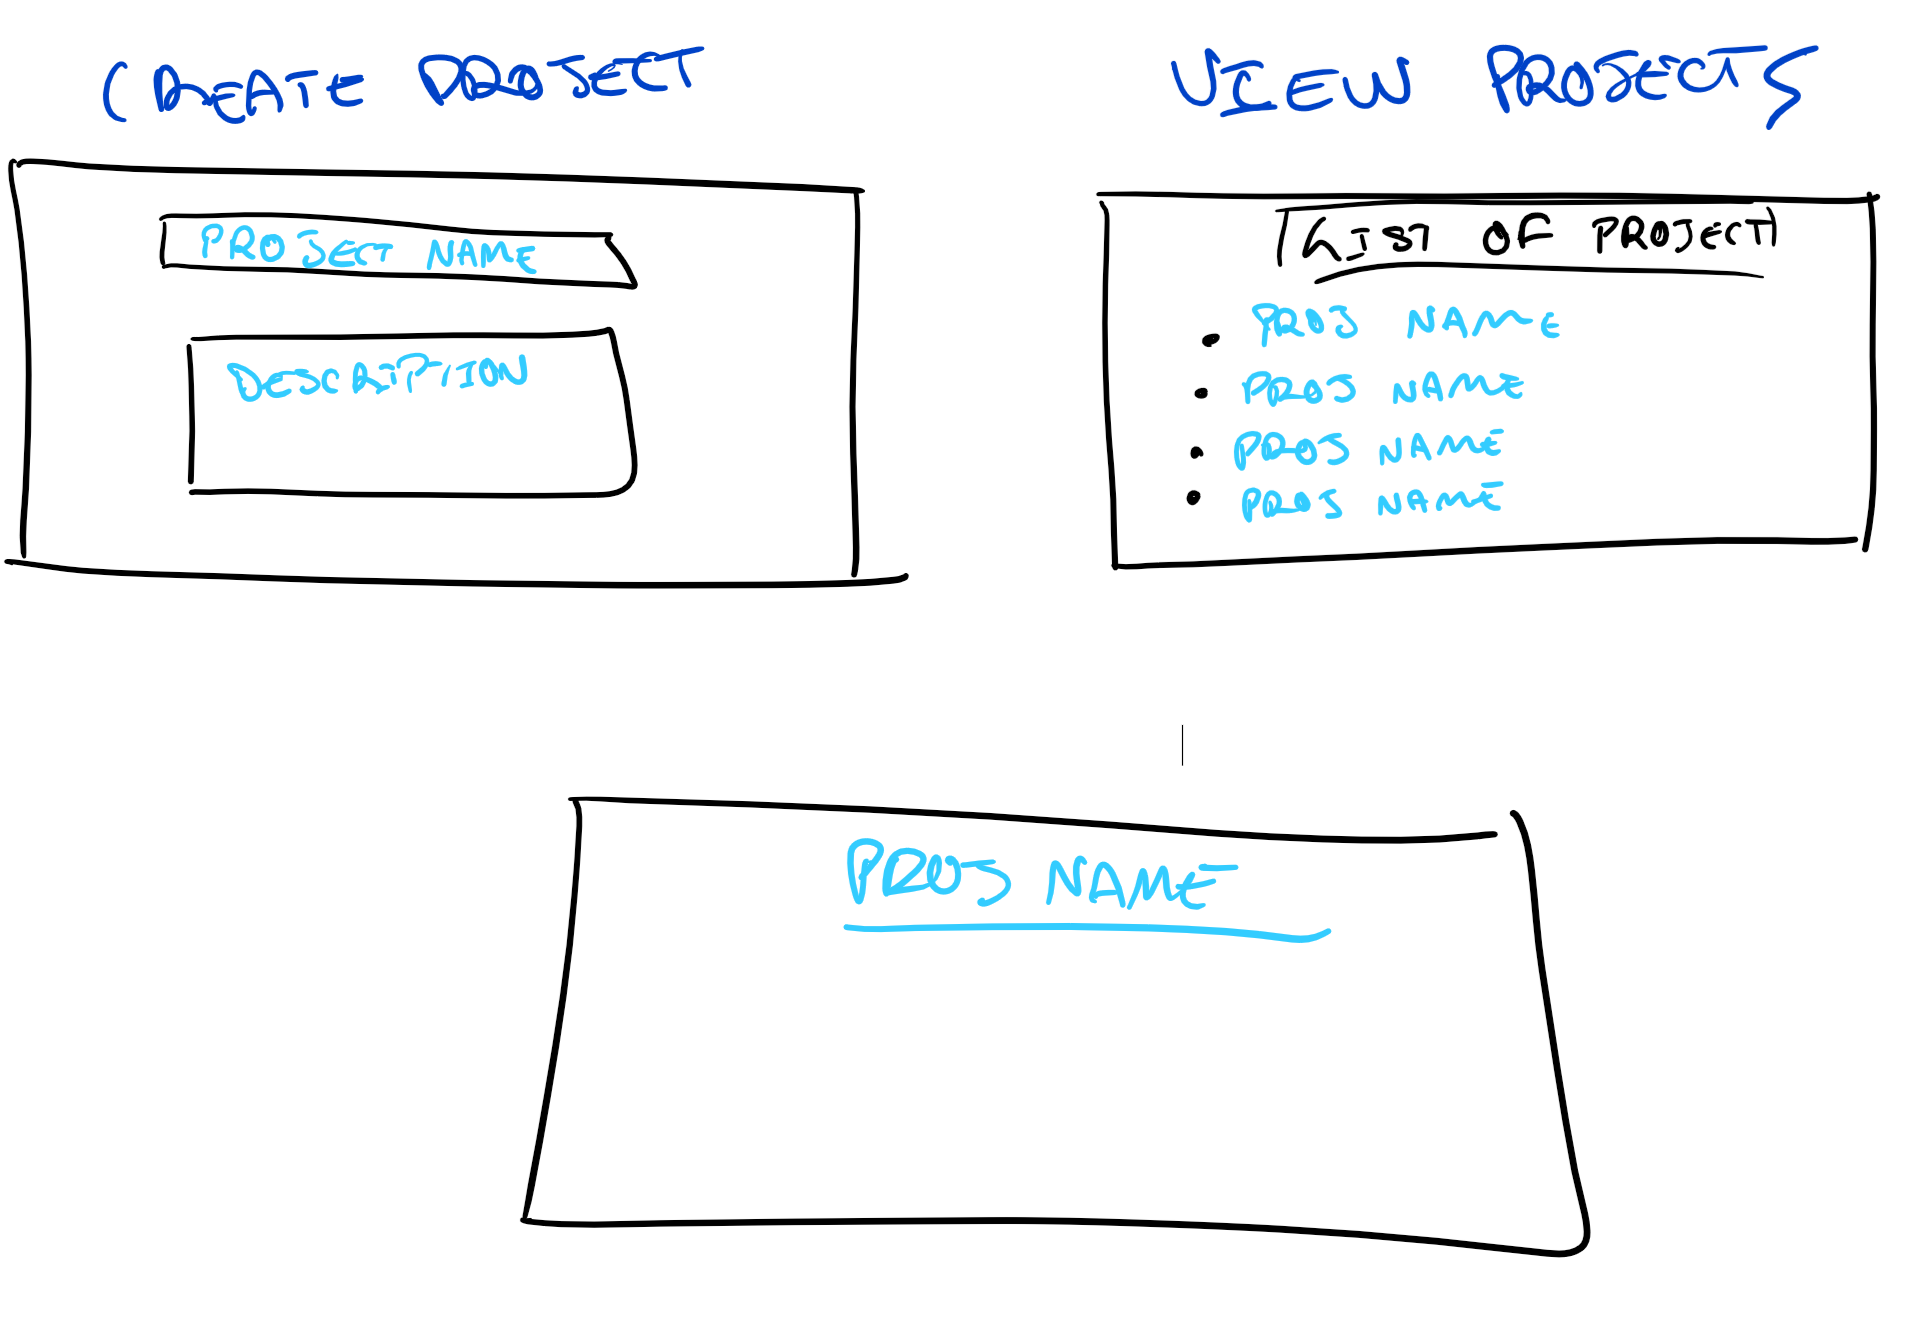 CREATE PROJECT
PROJECT NAME
DESCRIPTION
VIEW PROJECTS
LIST OF PROJECT
• PROJ NAME
• PROJ NAME
• PROJ NAME
• PROJ NAME
PROJ NAME